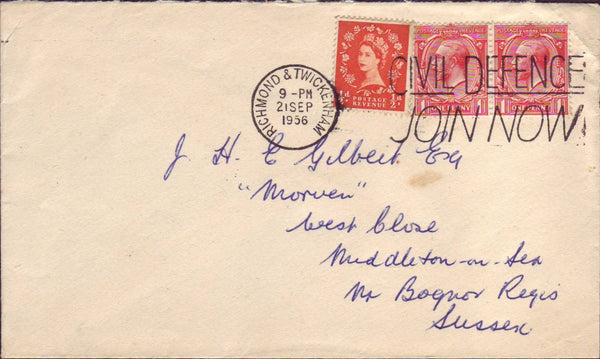 RICHMOND & TWICKENHAM
9-PM
21 SEP
1956
½d ½d
POSTAGE
REVENUE
CIVIL DEFENCE
JOIN NOW!
ONE PENNY ONE PENNY
J. H. E Gilbert Esq
"Morven"
West Close
Middleton-on-Sea
Nr Bognor Regis
Sussex